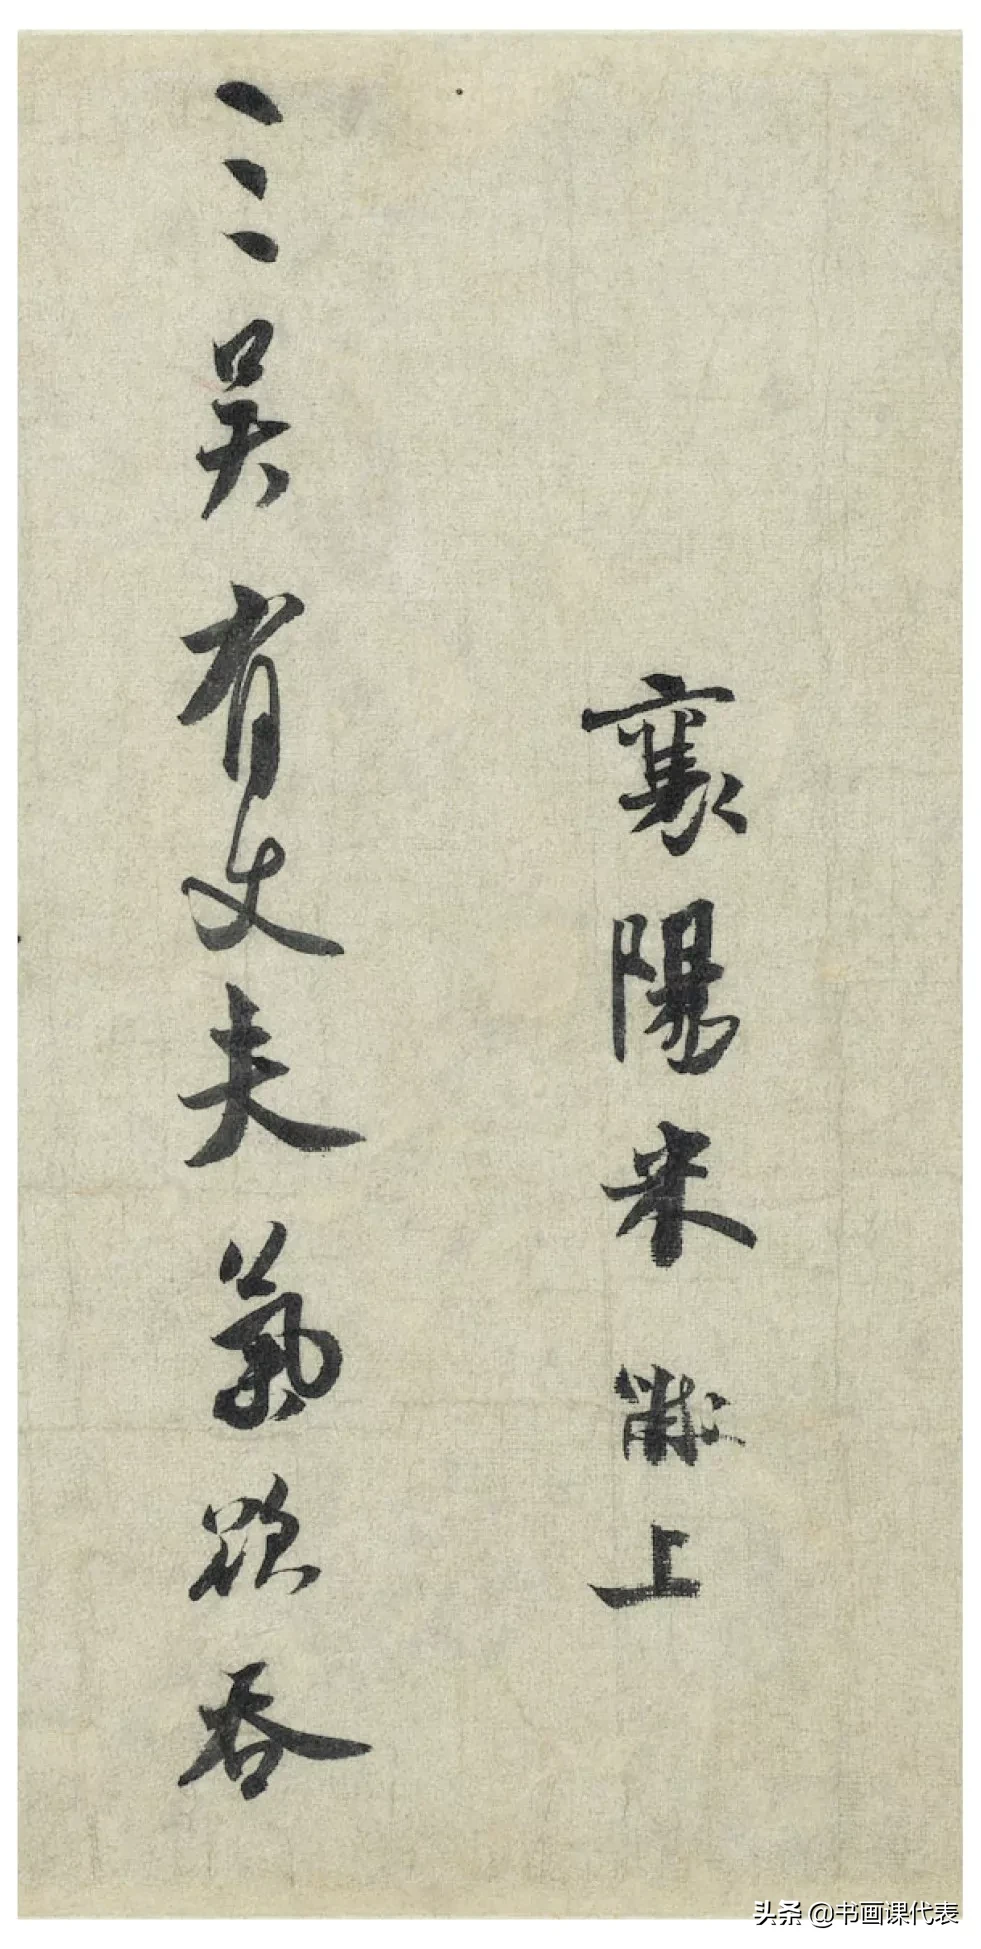 襄陽米黻上
三吴有丈夫氣欲吞
头条 @书画课代表